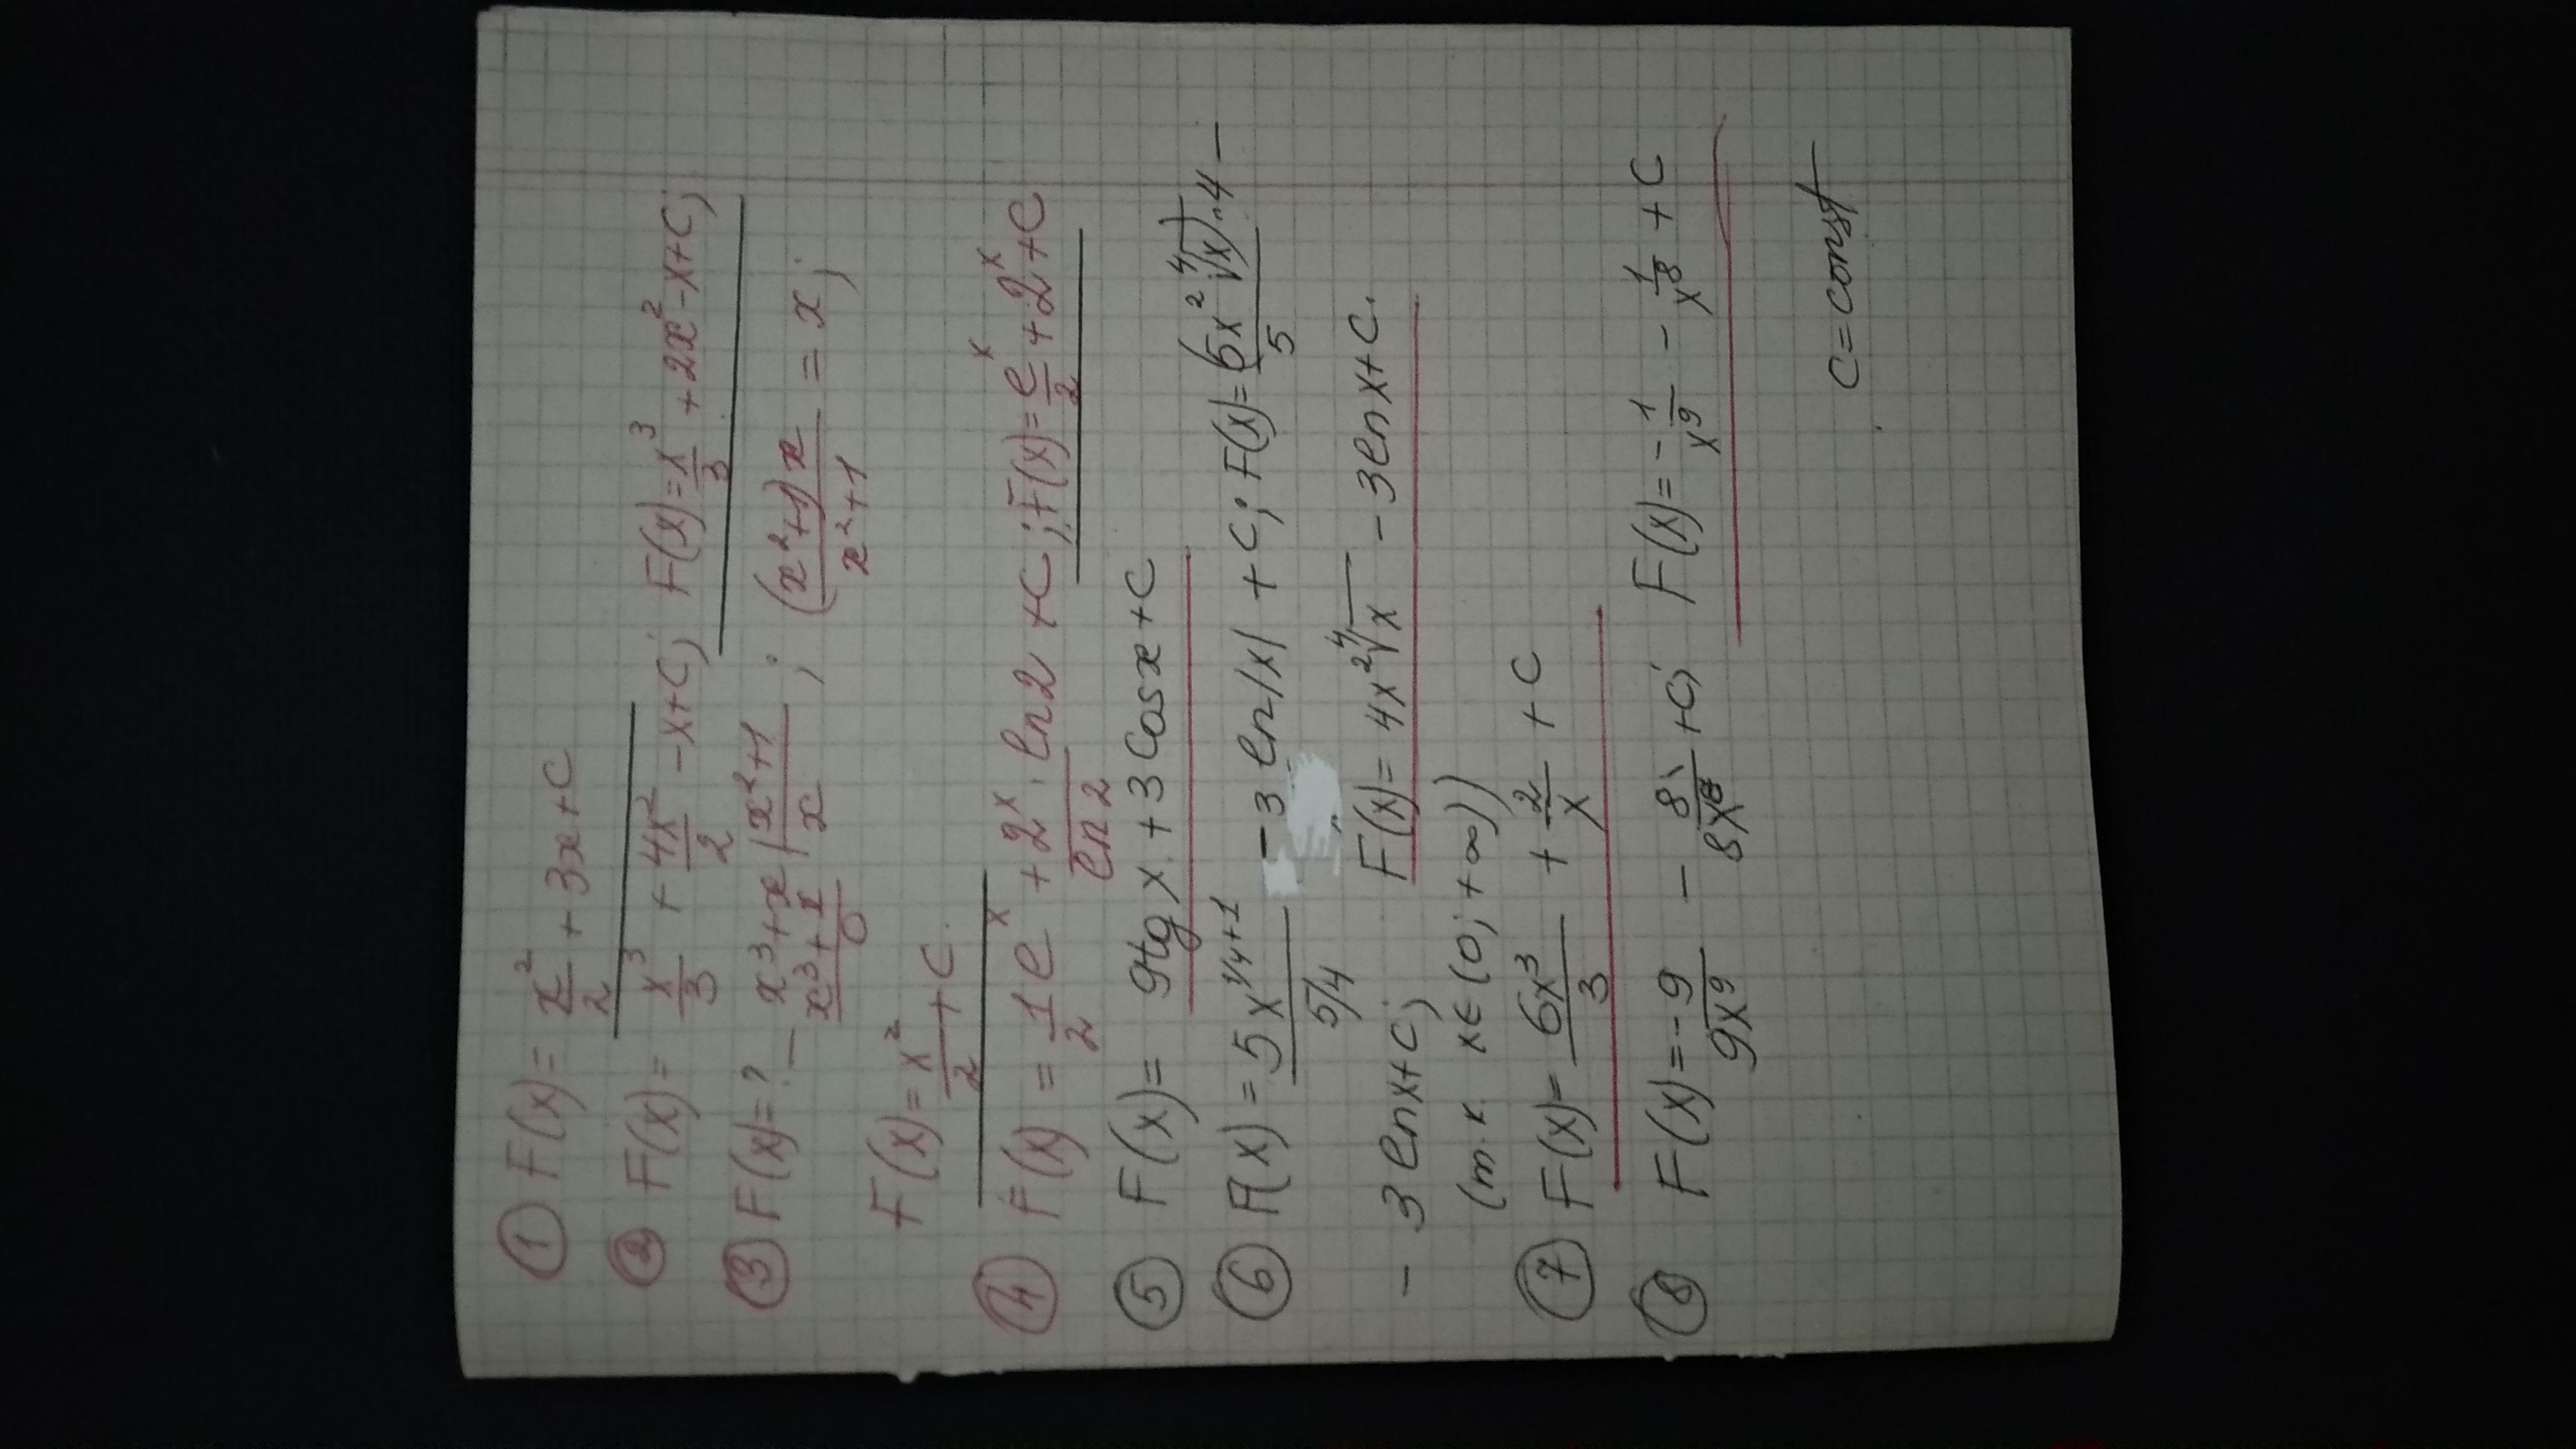 ① F(x) = x²/2 + 3x + C
② F(x) = x³/3 + 4x²/2 - x + C; F(x) = x³/3 + 2x² - x + C;
③ F(x) = ? _ x³+x | x²+1 ; (x²+1)x / x²+1 = x;
x³+x | x
0
F(x) = x²/2 + C.
④ F(x) = 1/2 e^x + 2^x · ln2 / ln2 + C; F(x) = e^x/2 + 2^x + C
⑤ F(x) = 9tg x + 3 cos x + C
⑥ F(x) = 5x^(1/4+1) / 5/4 - 3 ln|x| + C; F(x) = (5x² ⁴√x)·4 / 5 -
- 3 ln x + C; F(x) = 4x² ⁴√x - 3 ln x + C.
(т.к. x∈(0; +∞))
⑦ F(x) = 6x³/3 + 2/x + C
⑧ F(x) = - 9/9x⁹ - 8/8x⁸ + C; F(x) = - 1/x⁹ - 1/x⁸ + C
C = const